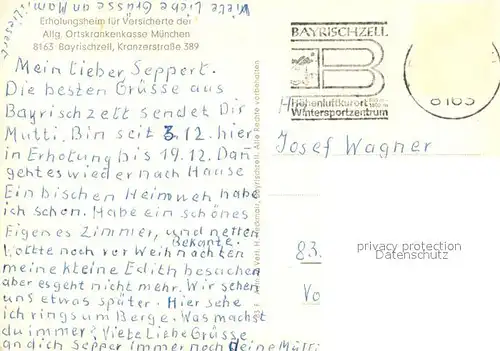 Viele Liebe Grüsse an Mami
Erholungsheim für Versicherte der
Allg. Ortskrankenkasse München
8163 Bayrischzell, Kranzerstraße 389
Mein lieber Seppert.
Die besten Grüsse aus
Bayrischzell sendet Dir
Mutti. Bin seit 3.12. hier
in Erhotung bis 19.12. Dan
geht es wieder nach Hause
Ein bischen Heimweh habe
ich schon. Habe ein schönes
Eigenes Zimmer, und netten
Bekante.
Wollte noch vor Weihnachten
meine kleine Edith besuchen
aber es geht nicht mehr. Wir sehen
uns etwas später. Hier sehe
ich rings um Berge. Was machst
du immer? Viele Liebe Grüsse
an dich Sepper immer noch deine Mutti
Alle Rechte vorbehalten
BAYRISCHZELL
B
Höhenluftkurort
Wintersportzentrum
8163
Josef Wagner
83.
Vo
privacy protection
Datenschutz